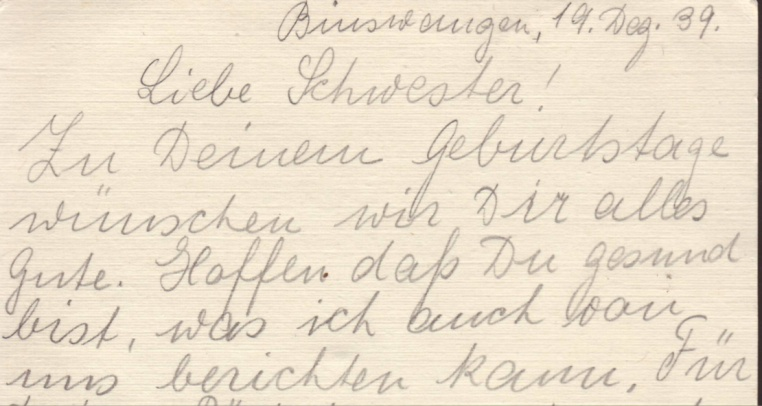 Binswangen, 19. Dez. 39.
Liebe Schwester!
Zu Deinem Geburtstage
wünschen wir Dir alles
gute. Hoffen daß Du gesund
bist, was ich auch von
uns berichten kann. Für